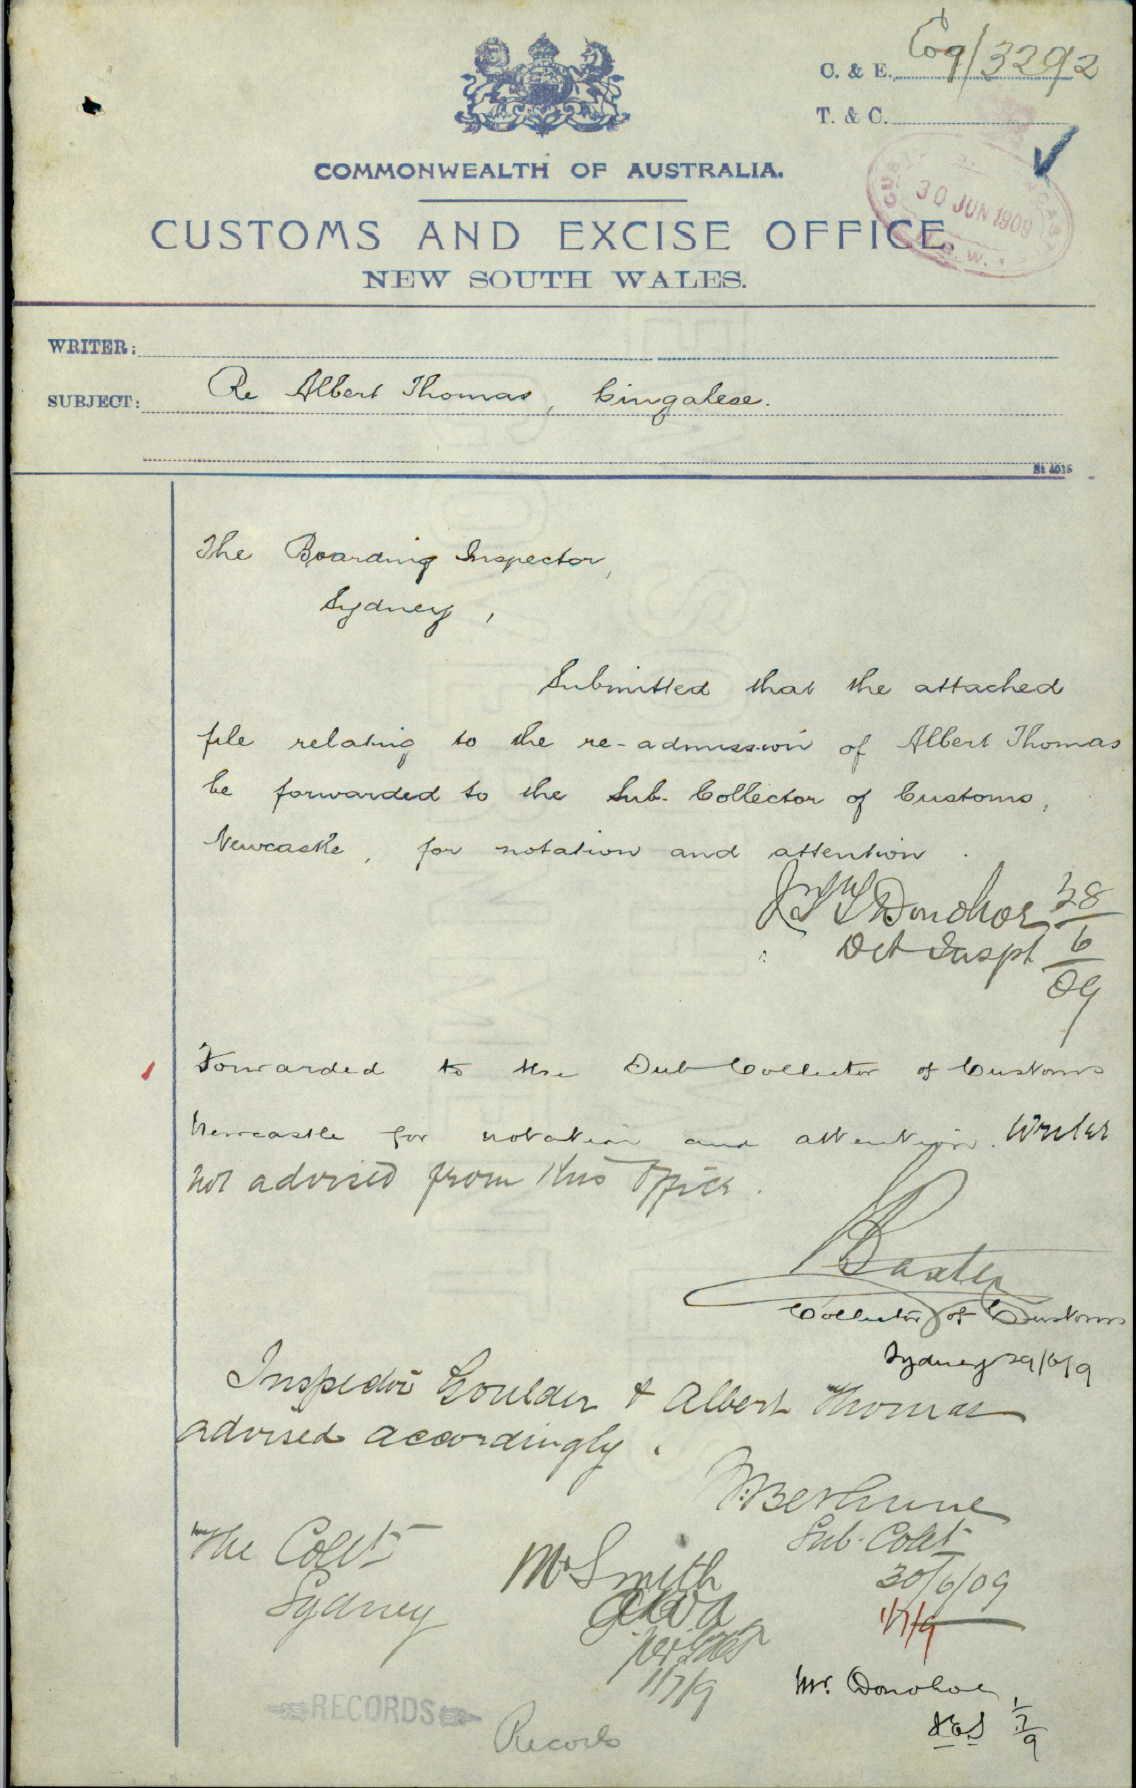 C. & E. C09/3292
T. & C.
COMMONWEALTH OF AUSTRALIA.
30 JUN 1909
CUSTOMS AND EXCISE OFFICE,
NEW SOUTH WALES.
WRITER:
SUBJECT: Re Albert Thomas, Cingalese.
The Boarding Inspector,
Sydney,
Submitted that the attached
file relating to the re-admission of Albert Thomas
be forwarded to the Sub-Collector of Customs,
Newcastle, for notation and attention.
Donohoe 28
Det Inspt 6
09
Forwarded to the Sub Collector of Customs
Newcastle for notation and attention. Writer
not advised from this Office.
Baxter
Collector of Customs
Sydney 29/6/9
Inspector Goulder & Albert Thomas
advised accordingly.
Bethune
Sub-Collr
30/6/09
The Collr
Sydney
Mr Smith
1/7/9
1/7/9
Mr. Donohoe
1/7/9
RECORDS
Records